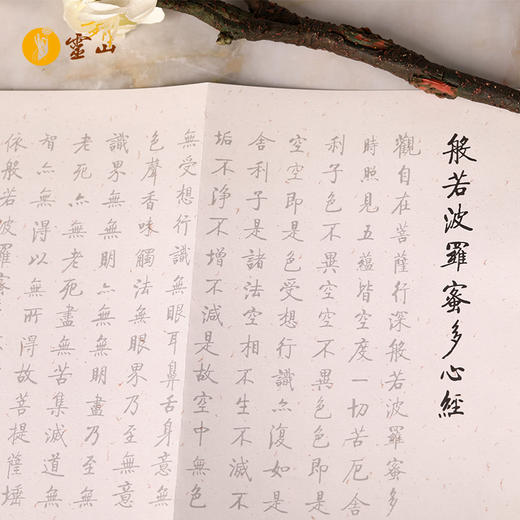 靈山
般若波羅蜜多心經
觀自在菩薩行深般若波羅蜜多
時照見五蘊皆空度一切苦厄舍
利子色不異空空不異色色即是
空空即是色受想行識亦復如是
舍利子是諸法空相不生不滅不
垢不淨不增不減是故空中無色
無受想行識無眼耳鼻舌身意無
色聲香味觸法無眼界乃至無意
識界無無明亦無無明盡乃至無
老死亦無老死盡無苦集滅道無
智亦無得以無所得故菩提薩埵
依般若波羅蜜